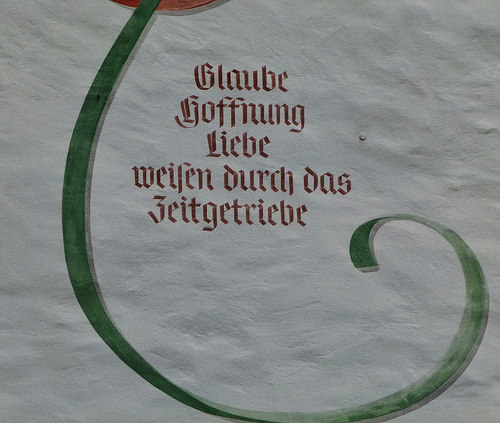 Glaube
Hoffnung
Liebe
weiſen durch das
Zeitgetriebe